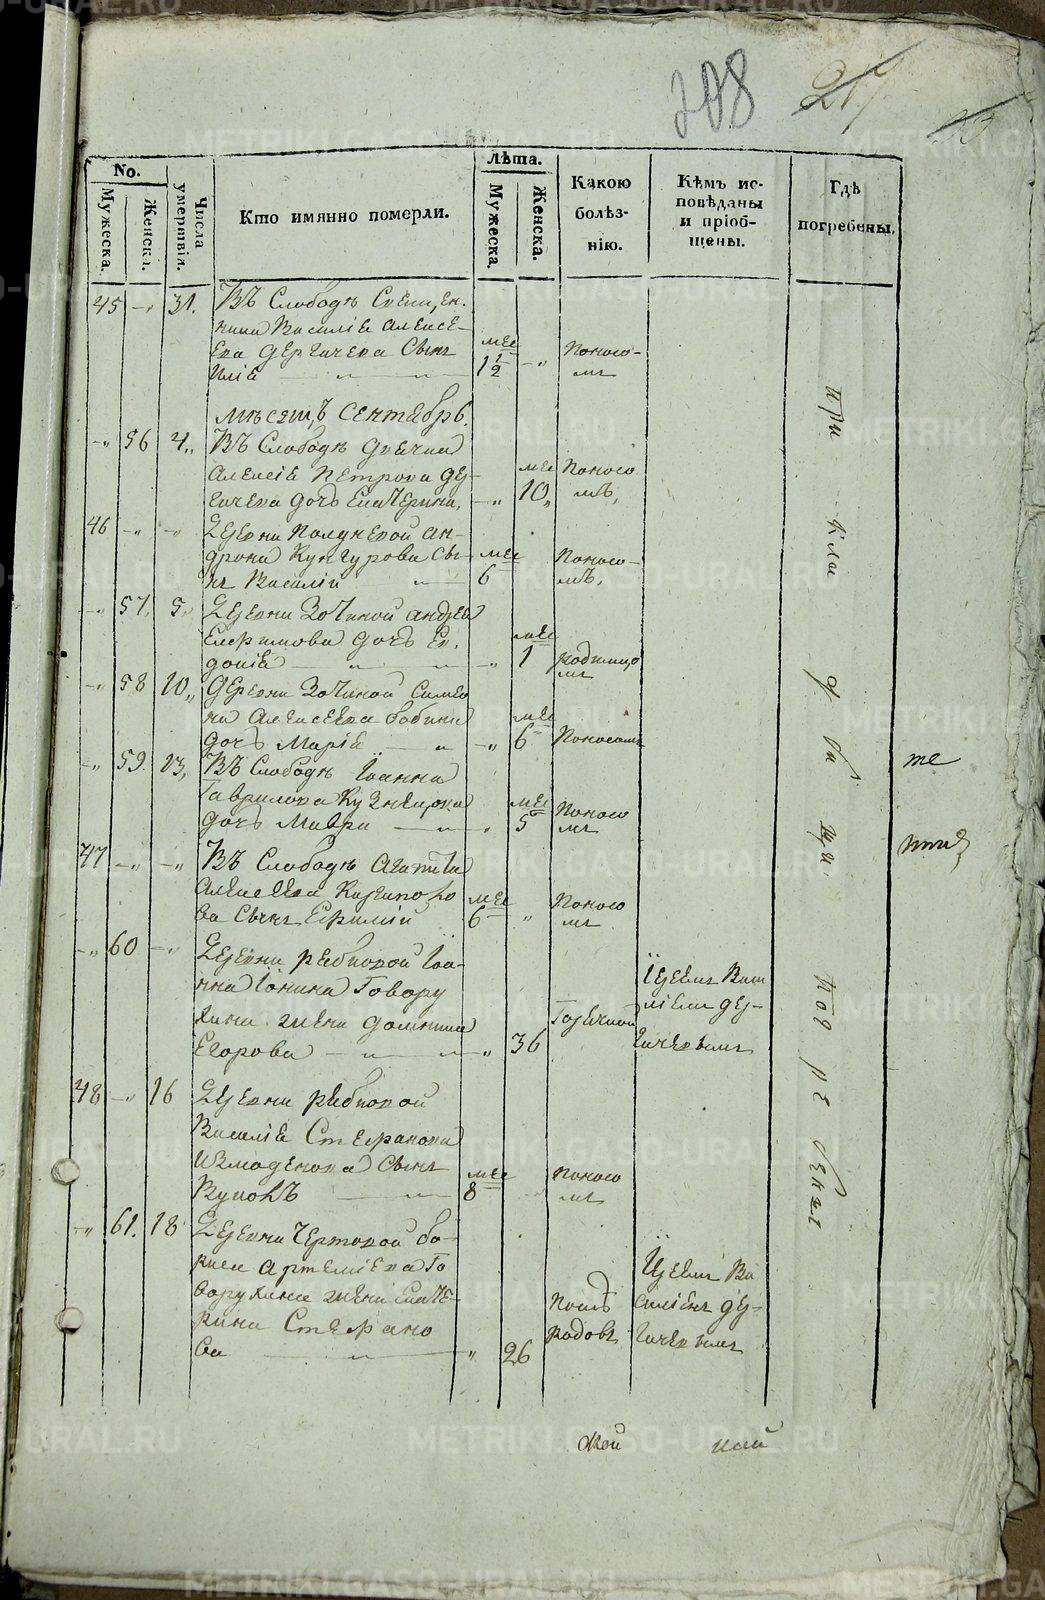 208
217
No.
Мужеска.
Женска.
Числа умертвіи.
Кто имянно померли.
Лѣта.
Мужеска.
Женска.
Какою болѣз-нію.
Кѣмъ ис-повѣданы и пріоб-щены.
Гдѣ погребены.
45 —„ 31. Въ Слободѣ Священ,
ника Василіа Алексе-
ева Дергачева Сынъ
Иліа — „ — „ — мес 1 1/2 — „ Поносо-мъ
мѣсяцъ Сентябрь.
—„ 56 4„ Въ Слободѣ Дьячка
Алексіа Петрова Де
гачева дочь Екатерина, — „ мес 10„ Поносо мъ,
46 —„ —„ Деревни Полуневой Ан-
дрона Кунгурова Сы-
нъ Василій — „ мес 6 Поносо-мъ,
—„ 57. 5„ Деревни Зотиной Андрея
Ефимова дочь Ев,
докіа — „ — „ — „ мес 1 родимцо мъ
—„ 58 10„ Деревни Зотиной Симео
на Алексеева Бабина
дочь Маріа — „ — „ мес 6 Поносомъ
—„ 59. 13, Въ Слободѣ Іоанна
Гаврилова Кузнецова
дочь Мавра — „ — „ мес 5 Поносо мъ
47 —„ —„ Въ Слободѣ Агапита
Алексеева
ва Сынъ Ефимій мес 6 „ Поносо мъ
—„ 60 —„ Деревни Рябковой Іоа-
нна Іонина Говору
хина жена Домника
Егорова — „ — „ 36 Горячкой
Іереемъ Васи
ліемъ Дер-
гачевымъ
48 —„ 16 Деревни Рябковой
Василіа Стефанова
Измоденова Сынъ
Вуколъ — „ мес 8 поносо мъ
—„ 61. 18 Деревни Чертовой Бо-
риса Артеміева Го
ворухина жена Екате-
рина Стефано
ва — „ — „ 26 Послѣ родовъ
Іереемъ Ва
силіемъ Дер-
гачевымъ
при кла д би щи. погребены
же